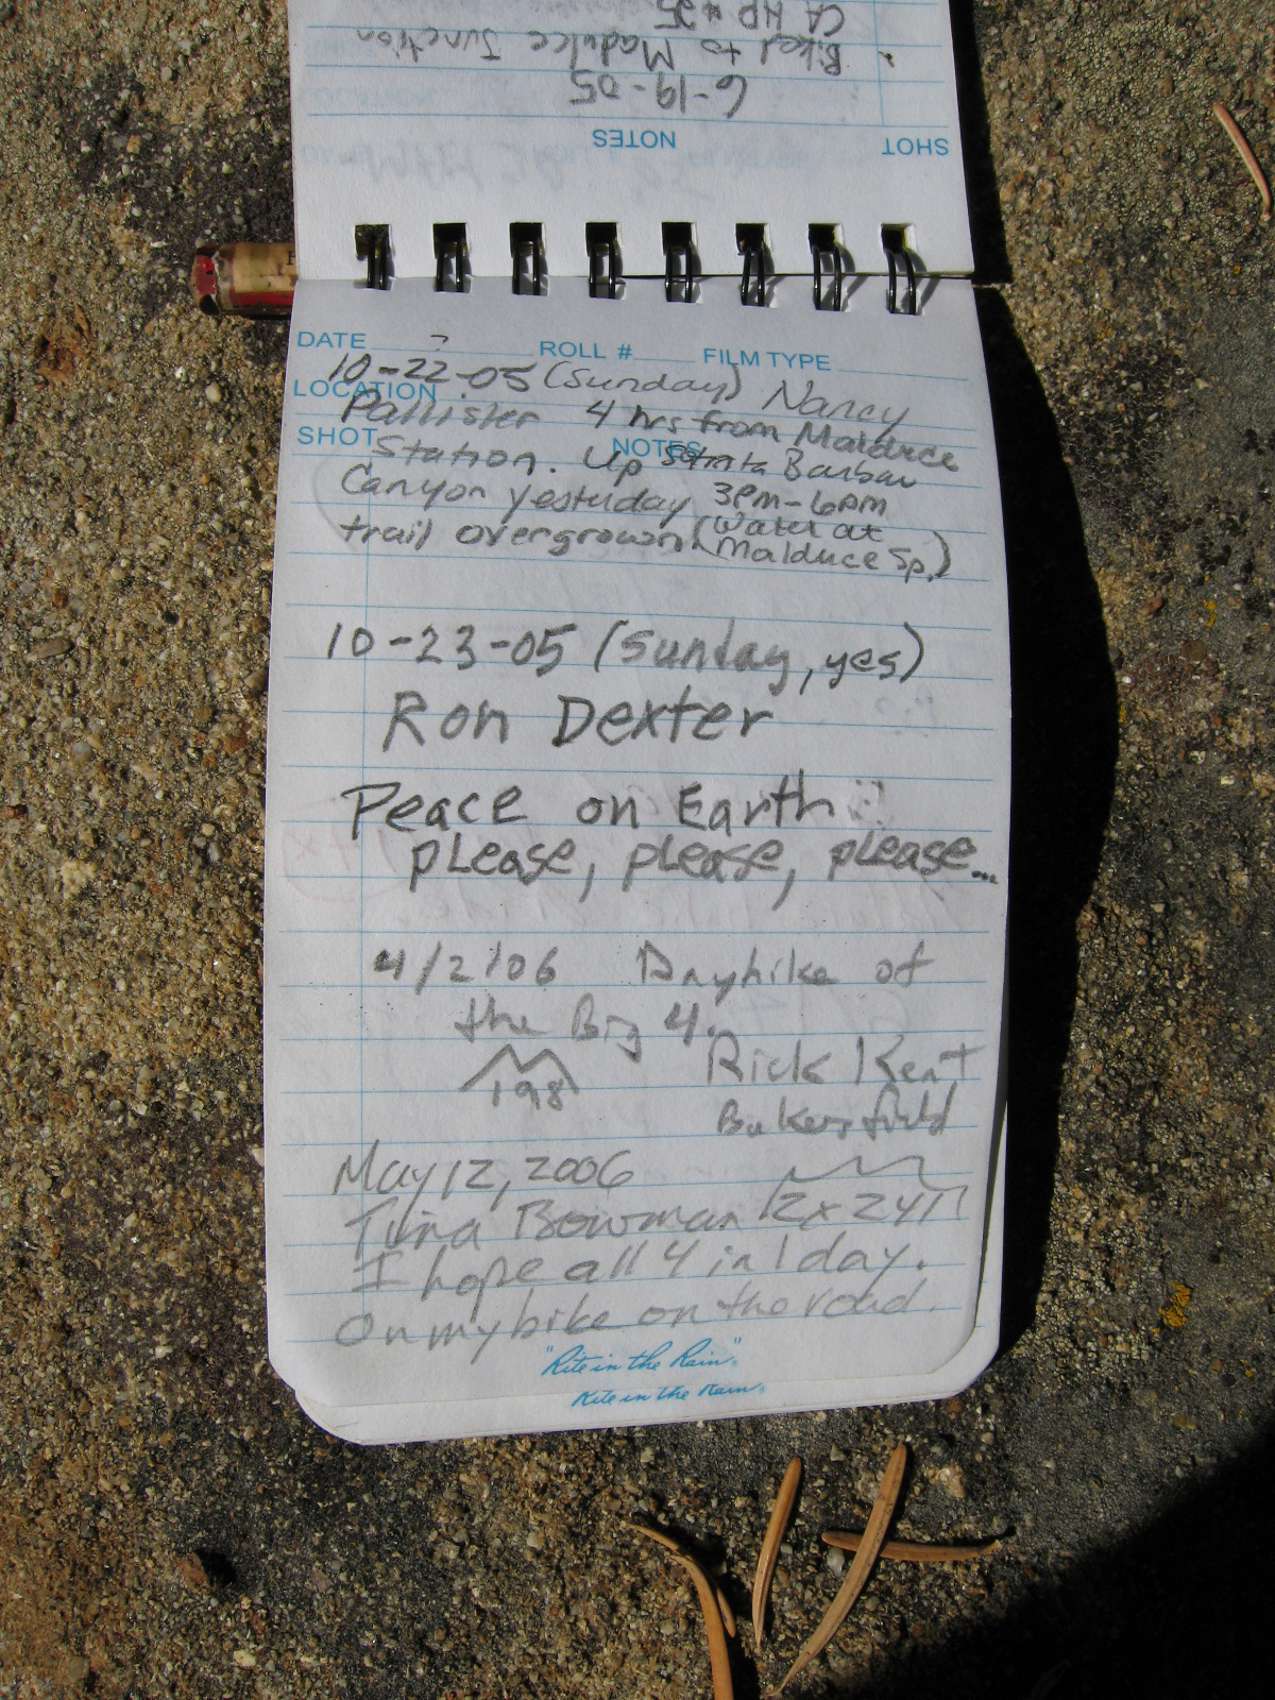 CA HP #25
Biked to Madulce Junction
6-19-05
SHOT NOTES
DATE ? ROLL # FILM TYPE
10-22-05 (Sunday) Nancy
LOCATION
Pallister 4 hrs from Malduce
SHOT NOTES
Station. Up Santa Barbar
Canyon yesterday 3pm-6pm
trail overgrown (Water at
Malduce Sp.)
10-23-05 (Sunday, yes)
Ron Dexter
Peace on Earth
please, please, please...
4/2/06 Dayhike of
the Big 4.
198 Rick Kent
Bakersfield
May 12, 2006
Tina Bowman
I hope all 4 in 1 day.
On my bike on the road.
"Rite in the Rain"
Rite in the Rain